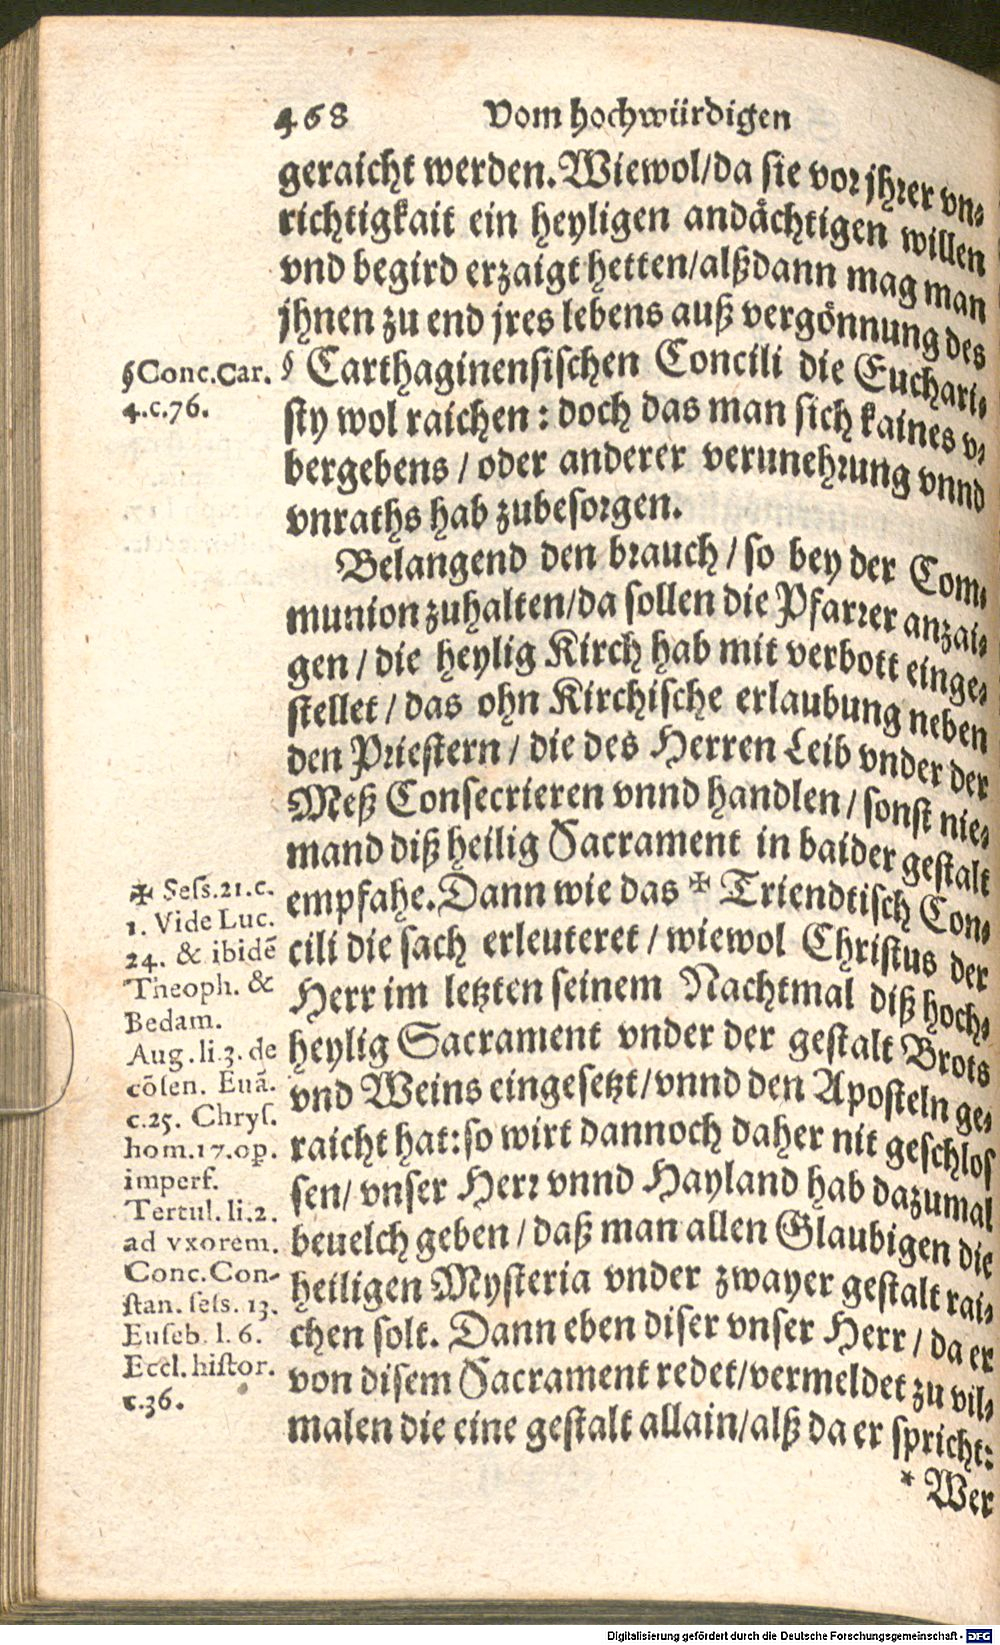 468 Vom hochwürdigen
geraicht werden. Wiewol/da sie vor jhrer vn⸗
richtigkait ein heyligen andächtigen willen
vnd begird erzaigt hetten/alßdann mag man
jhnen zu end jres lebens auß vergönnung des
§ Carthaginensischen Concili die Euchari⸗
sty wol raichen: doch das man sich kaines v⸗
bergebens / oder anderer verunehrung vnnd
vnraths hab zubesorgen.
Belangend den brauch / so bey der Com⸗
munion zuhalten/da sollen die Pfarrer anzai⸗
gen / die heylig Kirch hab mit verbott einge⸗
stellet / das ohn Kirchische erlaubung neben
den Priestern / die des Herren Leib vnder der
Meß Consecrieren vnnd handlen / sonst nie⸗
mand diß heilig Sacrament in baider gestalt
empfahe. Dann wie das ✠ Triendtisch Con⸗
cili die sach erleuteret / wiewol Christus der
Herr im letzten seinem Nachtmal diß hoch⸗
heylig Sacrament vnder der gestalt Brots
vnd Weins eingesetzt/vnnd den Aposteln ge⸗
raicht hat: so wirt dannoch daher nit geschlos
sen/ vnser Herr vnnd Hayland hab dazumal
beuelch geben / daß man allen Glaubigen die
heiligen Mysteria vnder zwayer gestalt rai⸗
chen solt. Dann eben diser vnser Herr / da er
von disem Sacrament redet/vermeldet zu vil⸗
malen die eine gestalt allain/alß da er spricht:
* Wer
§ Conc. Car.
4.c.76.
✠ Sess.21.c.
1. Vide Luc.
24. & ibidē
Theoph. &
Bedam.
Aug. li.3. de
cōsen. Euā.
c.25. Chrys.
hom.17.op.
imperf.
Tertul. li.2.
ad vxorem.
Conc. Con-
stan. sess. 13.
Euseb. l. 6.
Eccl. histor.
c.36.
Digitalisierung gefördert durch die Deutsche Forschungsgemeinschaft - DFG